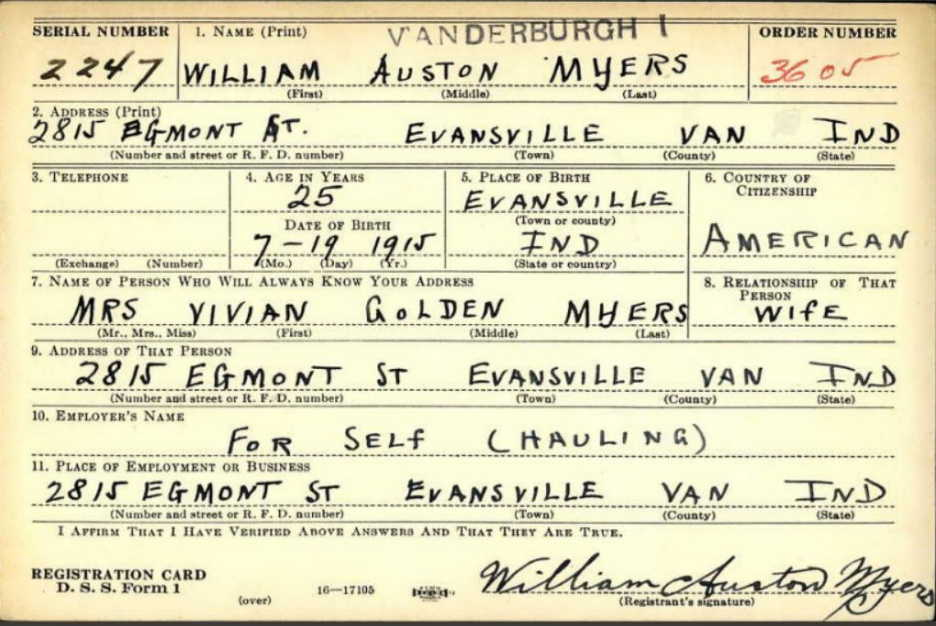 SERIAL NUMBER 1. NAME (Print) VANDERBURGH 1 ORDER NUMBER
2247 WILLIAM AUSTON MYERS 3605
(First) (Middle) (Last)
2. ADDRESS (Print)
2815 EGMONT ST. EVANSVILLE VAN IND
(Number and street or R. F. D. number) (Town) (County) (State)
3. TELEPHONE 4. AGE IN YEARS 5. PLACE OF BIRTH 6. COUNTRY OF
CITIZENSHIP
25 EVANSVILLE
DATE OF BIRTH (Town or county)
7-19 1915 IND AMERICAN
(Exchange) (Number) (Mo.) (Day) (Yr.) (State or country)
7. NAME OF PERSON WHO WILL ALWAYS KNOW YOUR ADDRESS 8. RELATIONSHIP OF THAT
PERSON
MRS VIVIAN GOLDEN MYERS WIFE
(Mr., Mrs., Miss) (First) (Middle) (Last)
9. ADDRESS OF THAT PERSON
2815 EGMONT ST EVANSVILLE VAN IND
(Number and street or R. F. D. number) (Town) (County) (State)
10. EMPLOYER'S NAME
FOR SELF (HAULING)
11. PLACE OF EMPLOYMENT OR BUSINESS
2815 EGMONT ST EVANSVILLE VAN IND
(Number and street or R. F. D. number) (Town) (County) (State)
I AFFIRM THAT I HAVE VERIFIED ABOVE ANSWERS AND THAT THEY ARE TRUE.
REGISTRATION CARD William Auston Myers
D. S. S. Form 1 (over) 16—17105 (Registrant's signature)